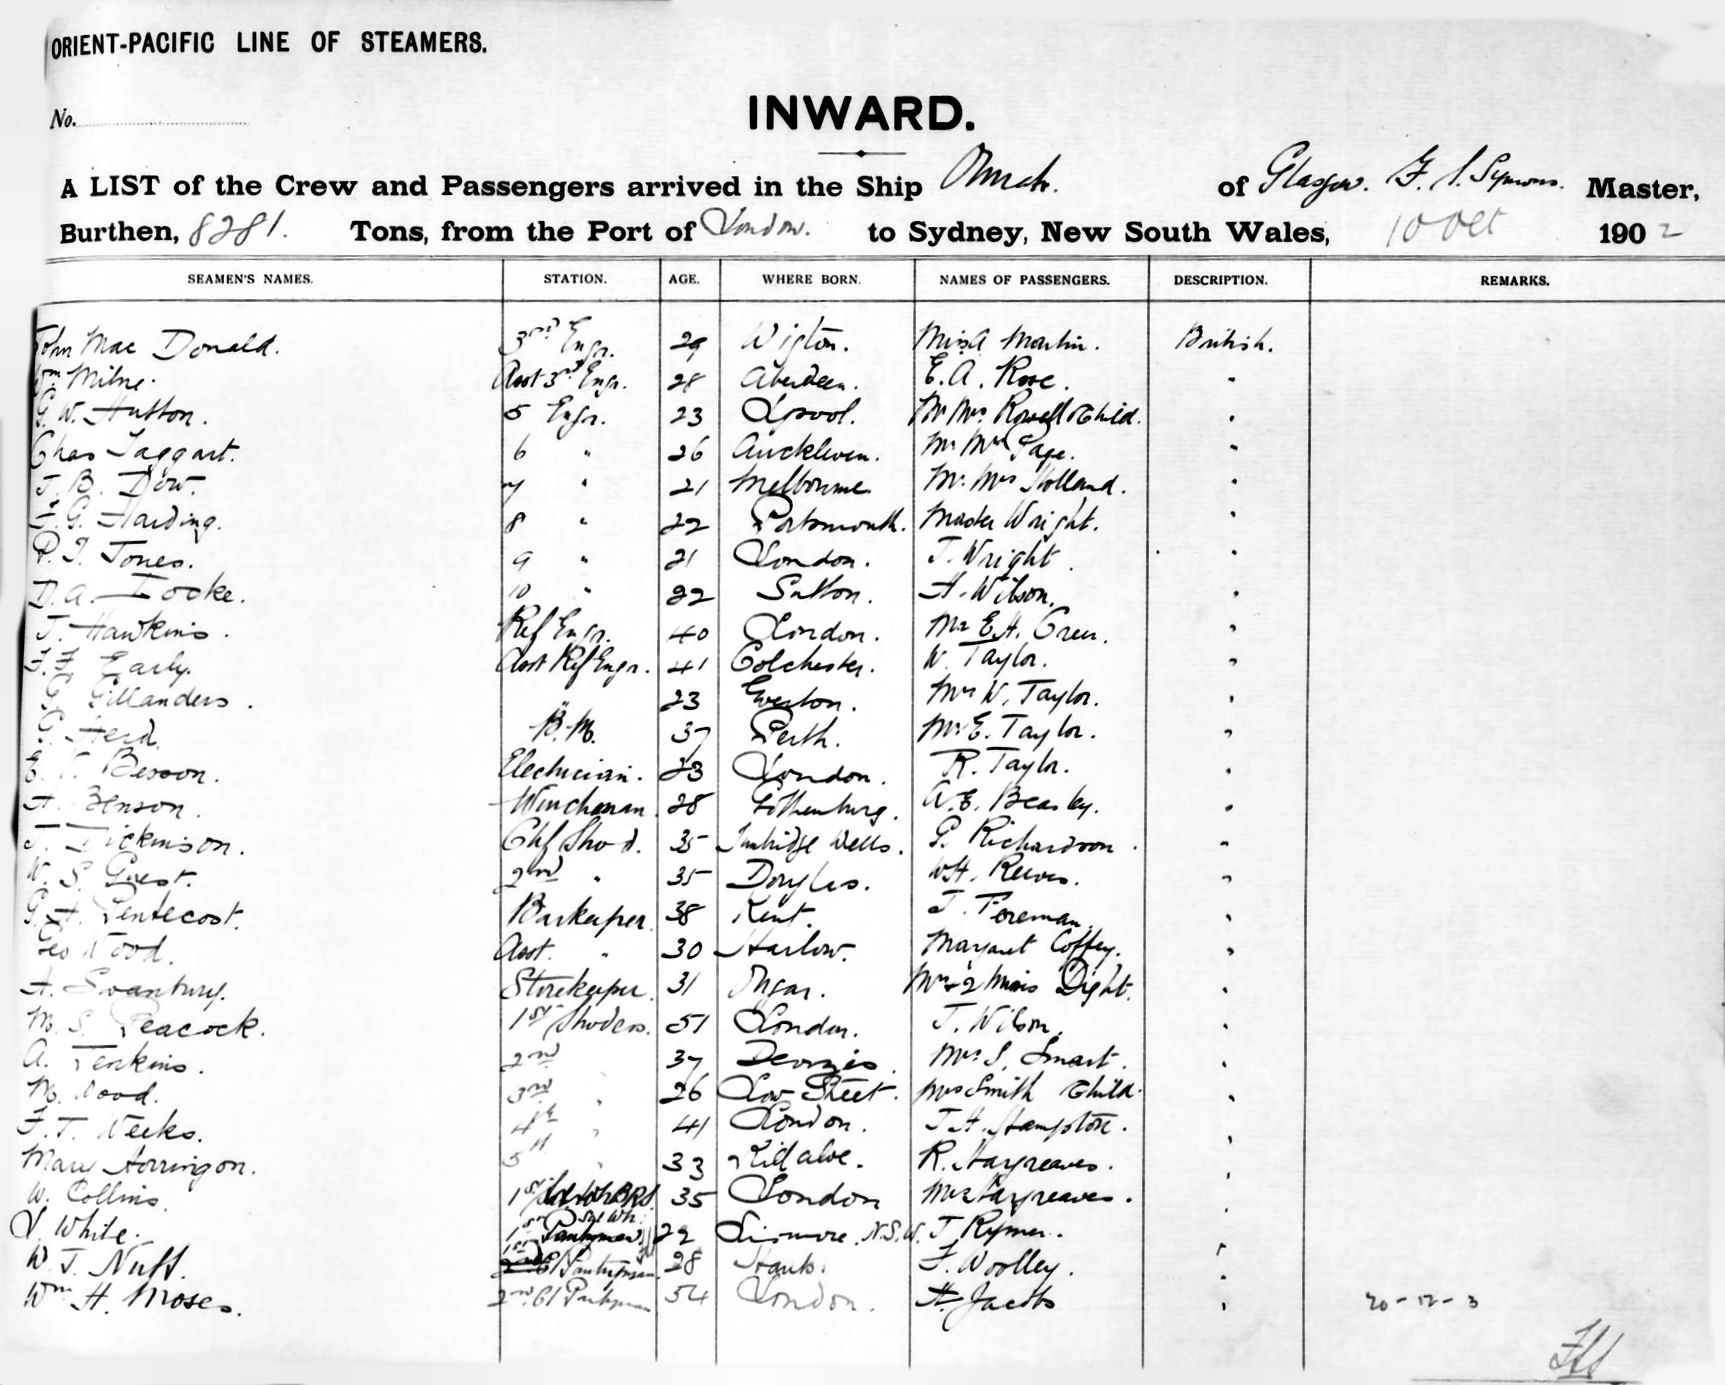 ORIENT-PACIFIC LINE OF STEAMERS.
No.
INWARD.
A LIST of the Crew and Passengers arrived in the Ship of Glasgow. F. S. Symons. Master,
Burthen, 8281. Tons, from the Port of London. to Sydney, New South Wales, 10 Oct 1902
SEAMEN'S NAMES. STATION. AGE. WHERE BORN. NAMES OF PASSENGERS. DESCRIPTION. REMARKS.
John Mac Donald. 3rd Engr. 29 Wigton. Miss A Martin. British.
Wm Milne. Asst 3rd Engr. 28 Aberdeen. E. A. Rose. "
G. W. Hutton. 5 Engr. 23 L'pool. Mr Mrs Rowell & Child. "
Chas Taggart. 6 " 26 Mr Mrs Page. "
J. B. Dow. 7 " 21 Melbourne Mr. Mrs Holland. "
F. G. Harding. 8 " 22 Portsmouth. Master Wright. "
R. T. Jones. 9 " 21 London. J. Wright. "
D. A. Locke. 10 " 22 Sutton. H. Wilson. "
J. Hawkins. Ref Engr. 40 London. Mr E. H. Green. "
F. F. Early. Asst Ref Engr. 41 Colchester. W. Taylor. "
G. Gillanders. " 23 Everton. Mrs W. Taylor. "
G. Herd. B. M. 37 Perth. Mr E. Taylor. "
E. Besson. Electrician. 23 London. R. Taylor. "
A. Benson. Winchman 28 Gothenburg. A. E. Beasley. "
J. Dickinson. Chf Stwd. 35 Tunbridge Wells. G. Richardson. "
W. S. Guest. 2nd " 35 W H. Reeves. "
G. H. Pentecost. Barkeeper 38 Kent. J. Foreman. "
Geo Wood. Asst. " 30 Harlow. Margaret Coffey. "
A. Swanbury. Storekeeper. 31 Ongar. Mrs & 2 Misses Dight. "
M. S. Peacock. 1st Stwdess. 51 London. J. Wilson. "
A. Jenkins. 2nd 37 Devizes. Mrs S. Smart. "
M. Wood. 3rd " 26 Low Street. Mrs Smith & Child. "
F. T. Weeks. 4th " 41 London. J. H. Hampton. "
Mary Horringon. 5th " 33 Kildalve. R. Hargreaves. "
W. Collins. 35 London Mrs Hargreaves. "
S. White. 1st Pantryman 22 Lismore. N.S.W. J Rymer. "
W. J. Nuff. Pantryman. 28 Hants. F. Woolley. "
Wm H. Moses. 2nd Cl Pantryman 54 London. H Jacobs " 20-12-3